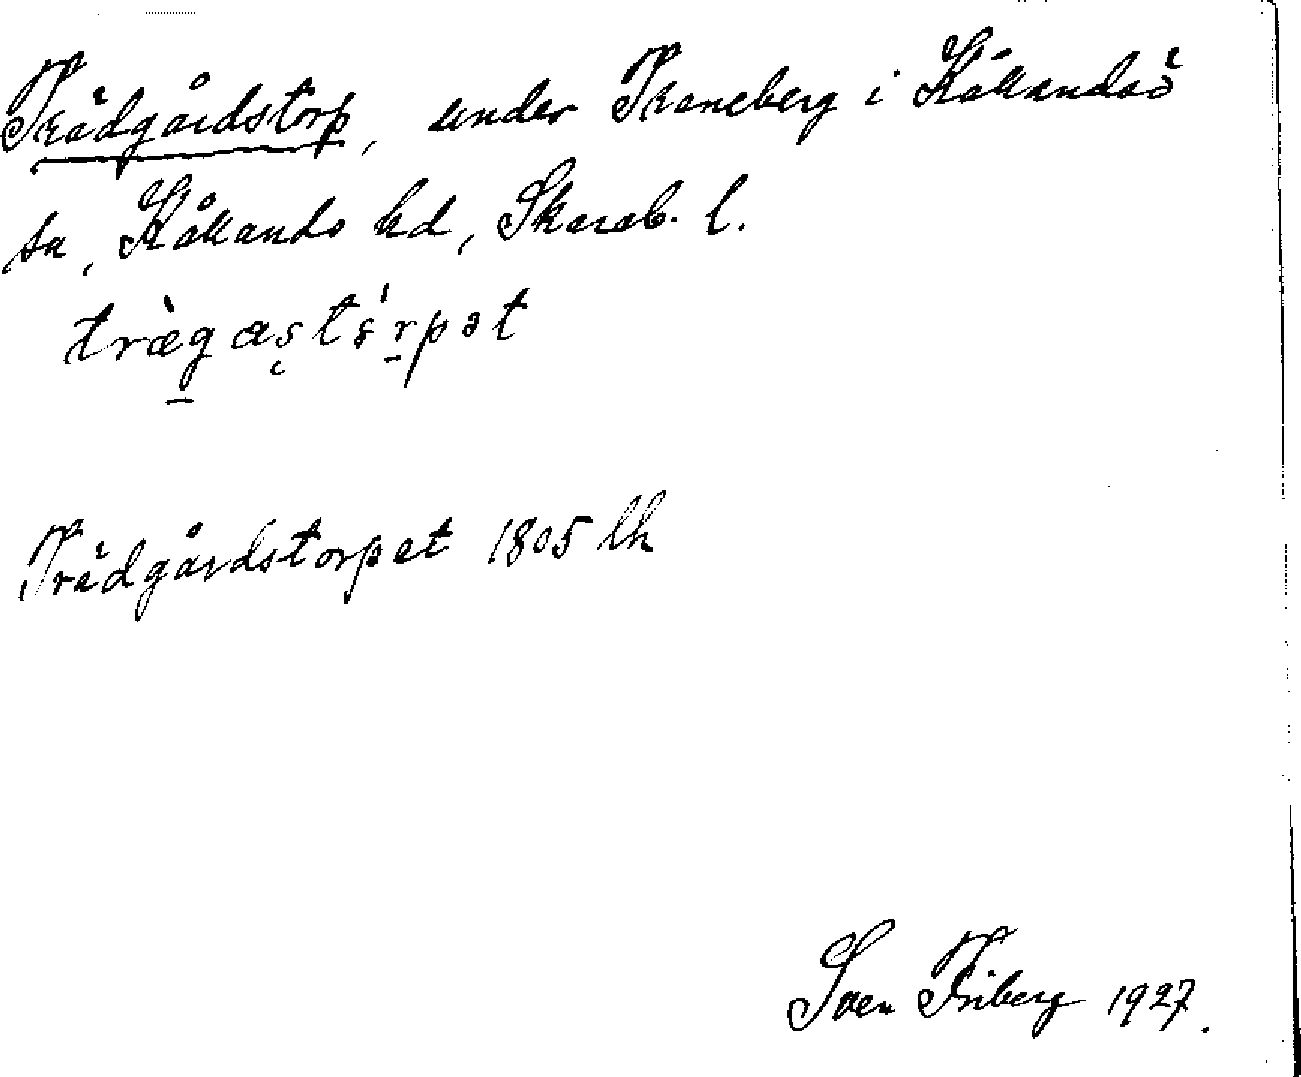 Trädgårdstorp, under Traneberg i Kållandsö
sn, Kållands hd, Skarab. l.
trægast rpət
Trädgårdstorpet 1805 lh
Sven Friberg 1927.